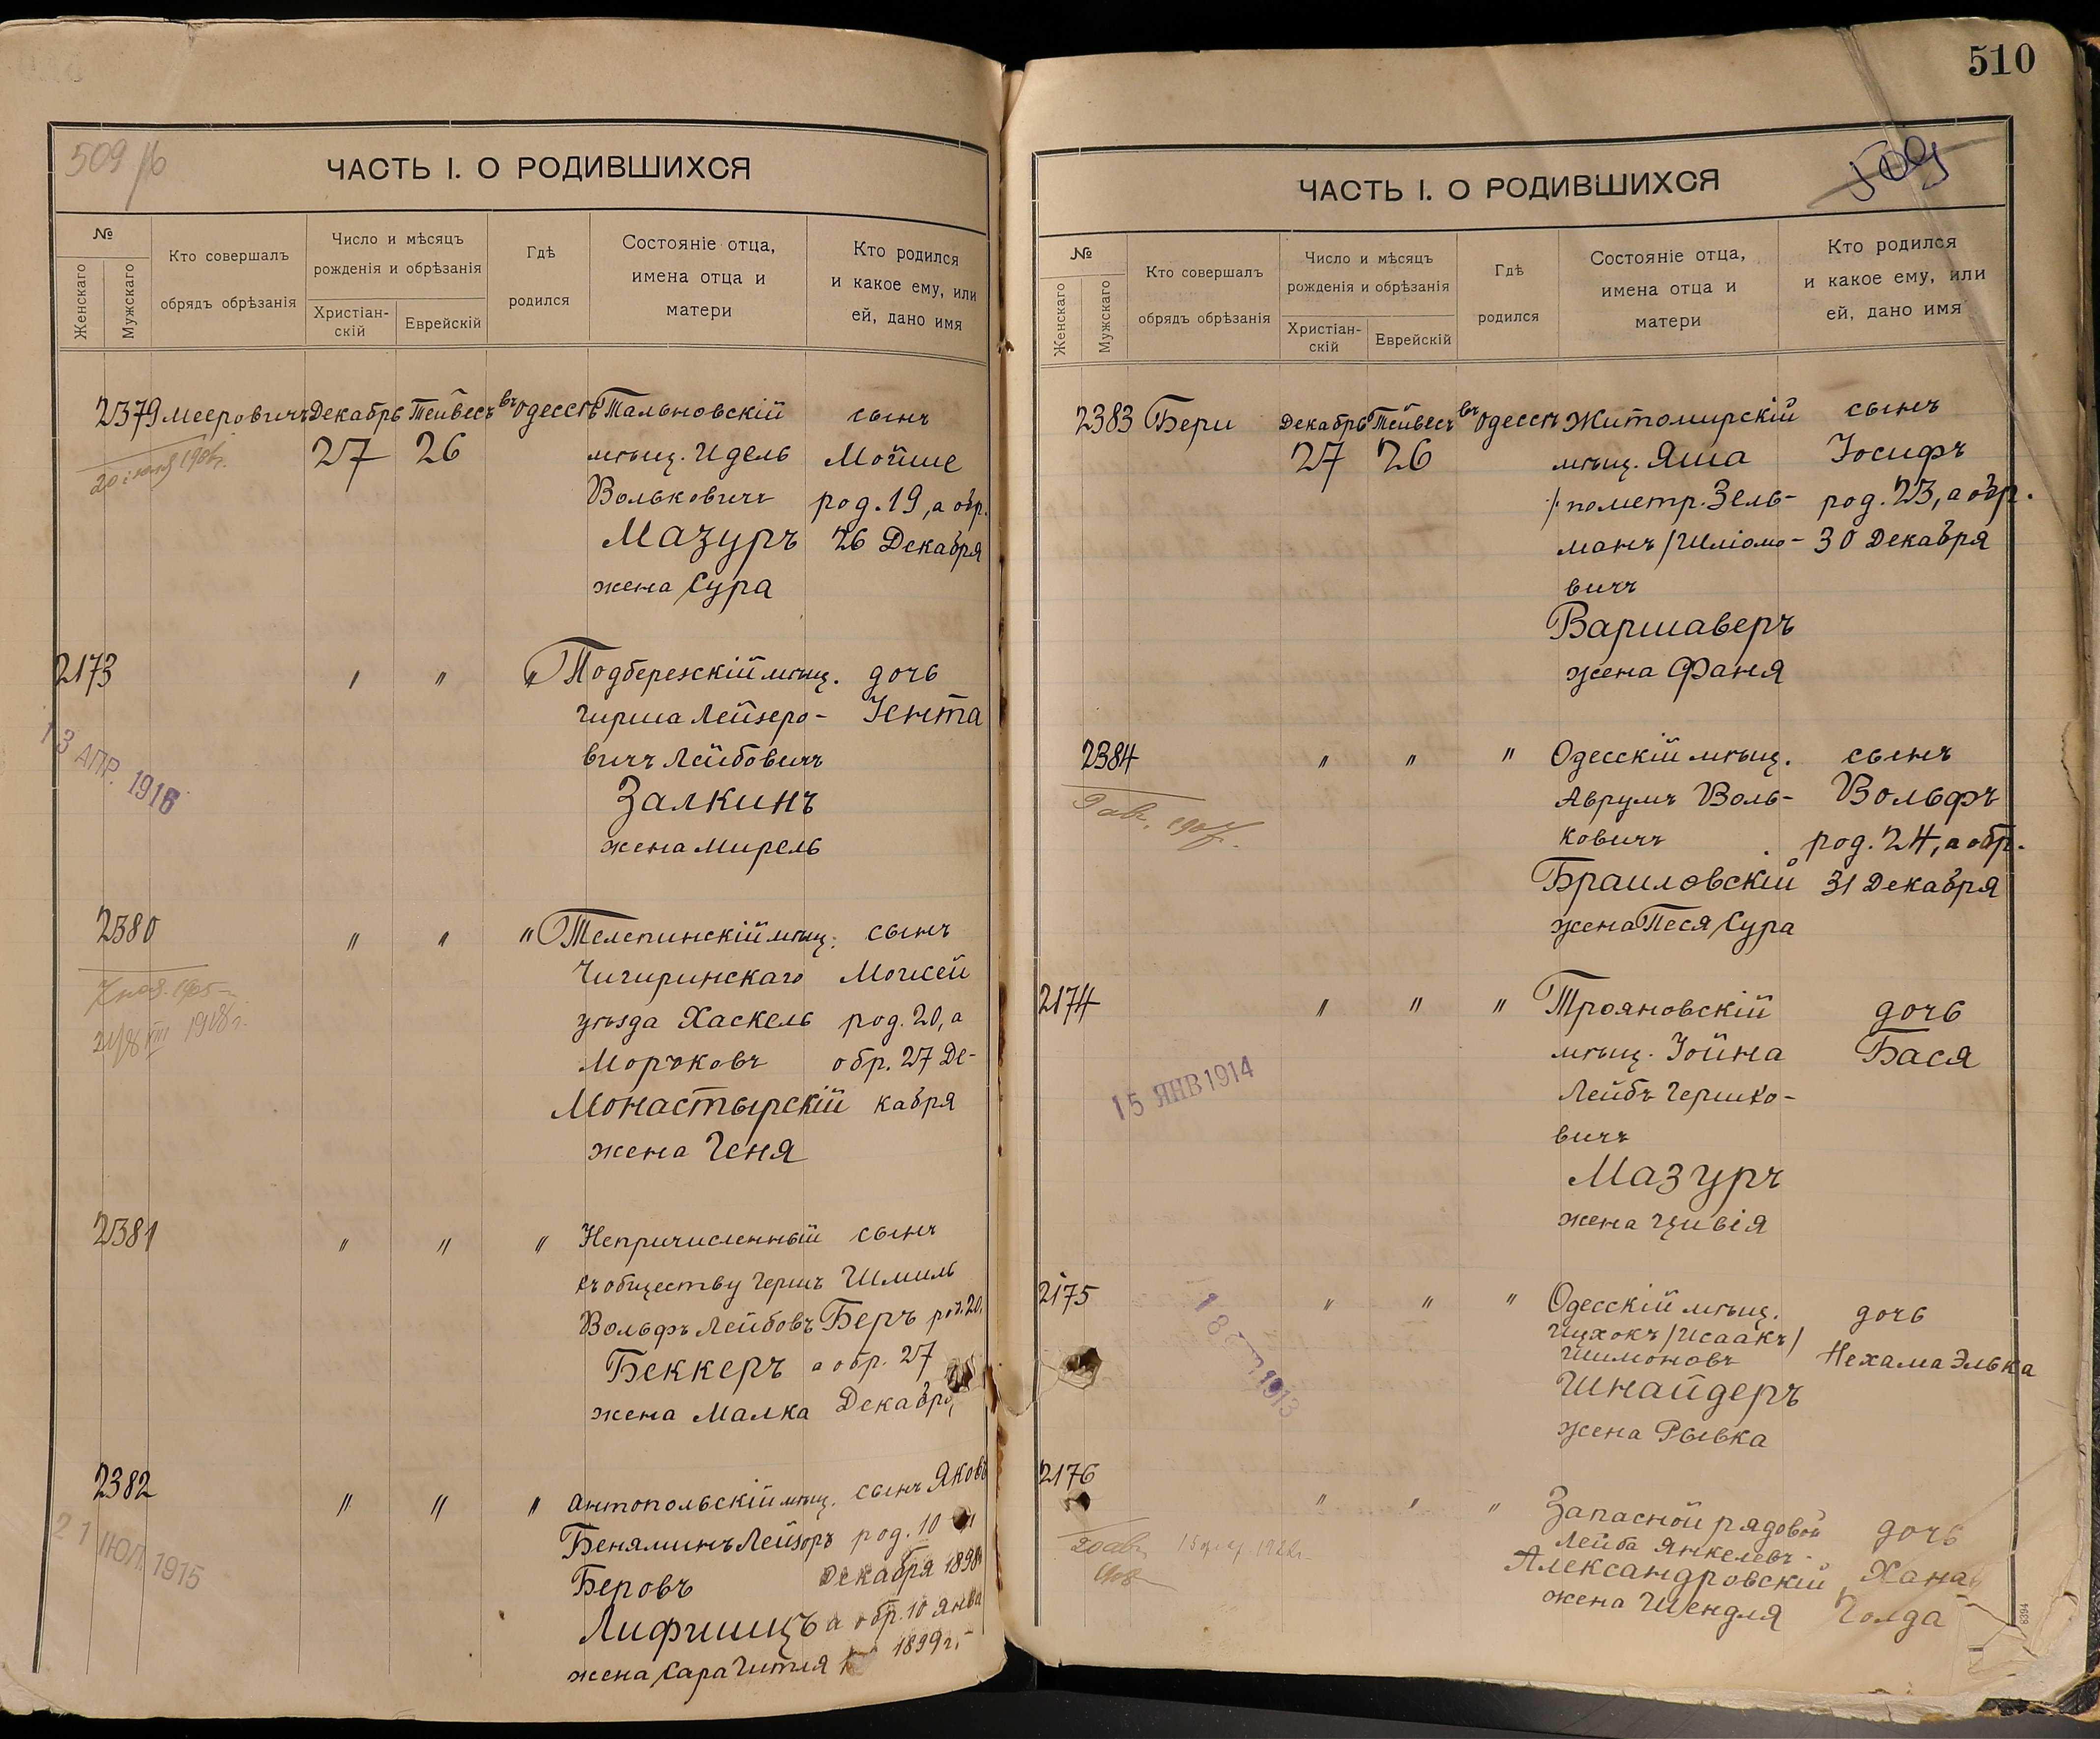 509 об
ЧАСТЬ I. О РОДИВШИХСЯ
№
Женскаго
Мужскаго
Кто совершалъ
обрядъ обрѣзанія
Число и мѣсяцъ
рожденія и обрѣзанія
Христіан-
скій
Еврейскій
Гдѣ
родился
Состояніе отца,
имена отца и
матери
Кто родился
и какое ему, или
ей, дано имя
2379 Мееровичъ Декабрь Тейвесъ въ Одессѣ Тальновскій сынъ
27 26 мѣщ. Идель Мойше
20 1906г.
Вольковичъ род. 19, а обр.
Мазуръ 26 Декабря
жена Сура
2173 " " " Подберезскій мѣщ. дочь
Гирша Лейзеро- Іента
вичъ Лейбовичъ
13 АПР. 1916
Залкинъ
жена Мирель
2380 " " " Телепинскій мѣщ. сынъ
Чигиринскаго Мошей
уѣзда Хаскель род. 20, а
Мордковъ обр. 27 Де-
Монастырскій кабря
жена Геня
2381 " " " Непричисленный сынъ
къ обществу Гершъ Шмиль
Вольфъ Лейбовъ Беръ род. 20,
Беккеръ а обр. 27
жена Малка Декабря
2382 " " " Антопольскій мѣщ. сынъ Яковъ
Беняминъ Лейзоръ род. 10
Беровъ Декабря 1898
21 ИЮЛ 1915
Лифшицъ а обр. 10 Янва
жена Сара Гитля 1899 г.
510
509
ЧАСТЬ I. О РОДИВШИХСЯ
№
Женскаго
Мужскаго
Кто совершалъ
обрядъ обрѣзанія
Число и мѣсяцъ
рожденія и обрѣзанія
Христіан-
скій
Еврейскій
Гдѣ
родился
Состояніе отца,
имена отца и
матери
Кто родился
и какое ему, или
ей, дано имя
2383 Бери Декабрь Тейвесъ въ Одессѣ Житомирскій сынъ
27 26 мѣщ. Яша Іосифъ
/по метр. Зель- род. 23, а обр.
манъ/ Шліомо- 30 Декабря
вичъ
Варшаверъ
жена Фаня
2384 " " " Одесскій мѣщ. сынъ
9 авг. 1907г.
Аврумъ Воль- Вольфъ
ковичъ род. 24, а обр.
Браиловскій 31 Декабря
жена Песя Сура
2174 " " " Трояновскій дочь
мѣщ. Іойна Бася
Лейбъ Гершко-
15 ЯНВ 1914
вичъ
Мазуръ
жена Цивія
2175 " " " Одесскій мѣщ. дочь
Ицхокъ /Исаакъ/
Шимоновъ Нехама Элька
18 1913
Шнайдеръ
жена Рывка
2176 " " " Запасной рядовой дочь
Лейба Янкелевъ
Александровскій Хана
жена Шендля Голда
6394